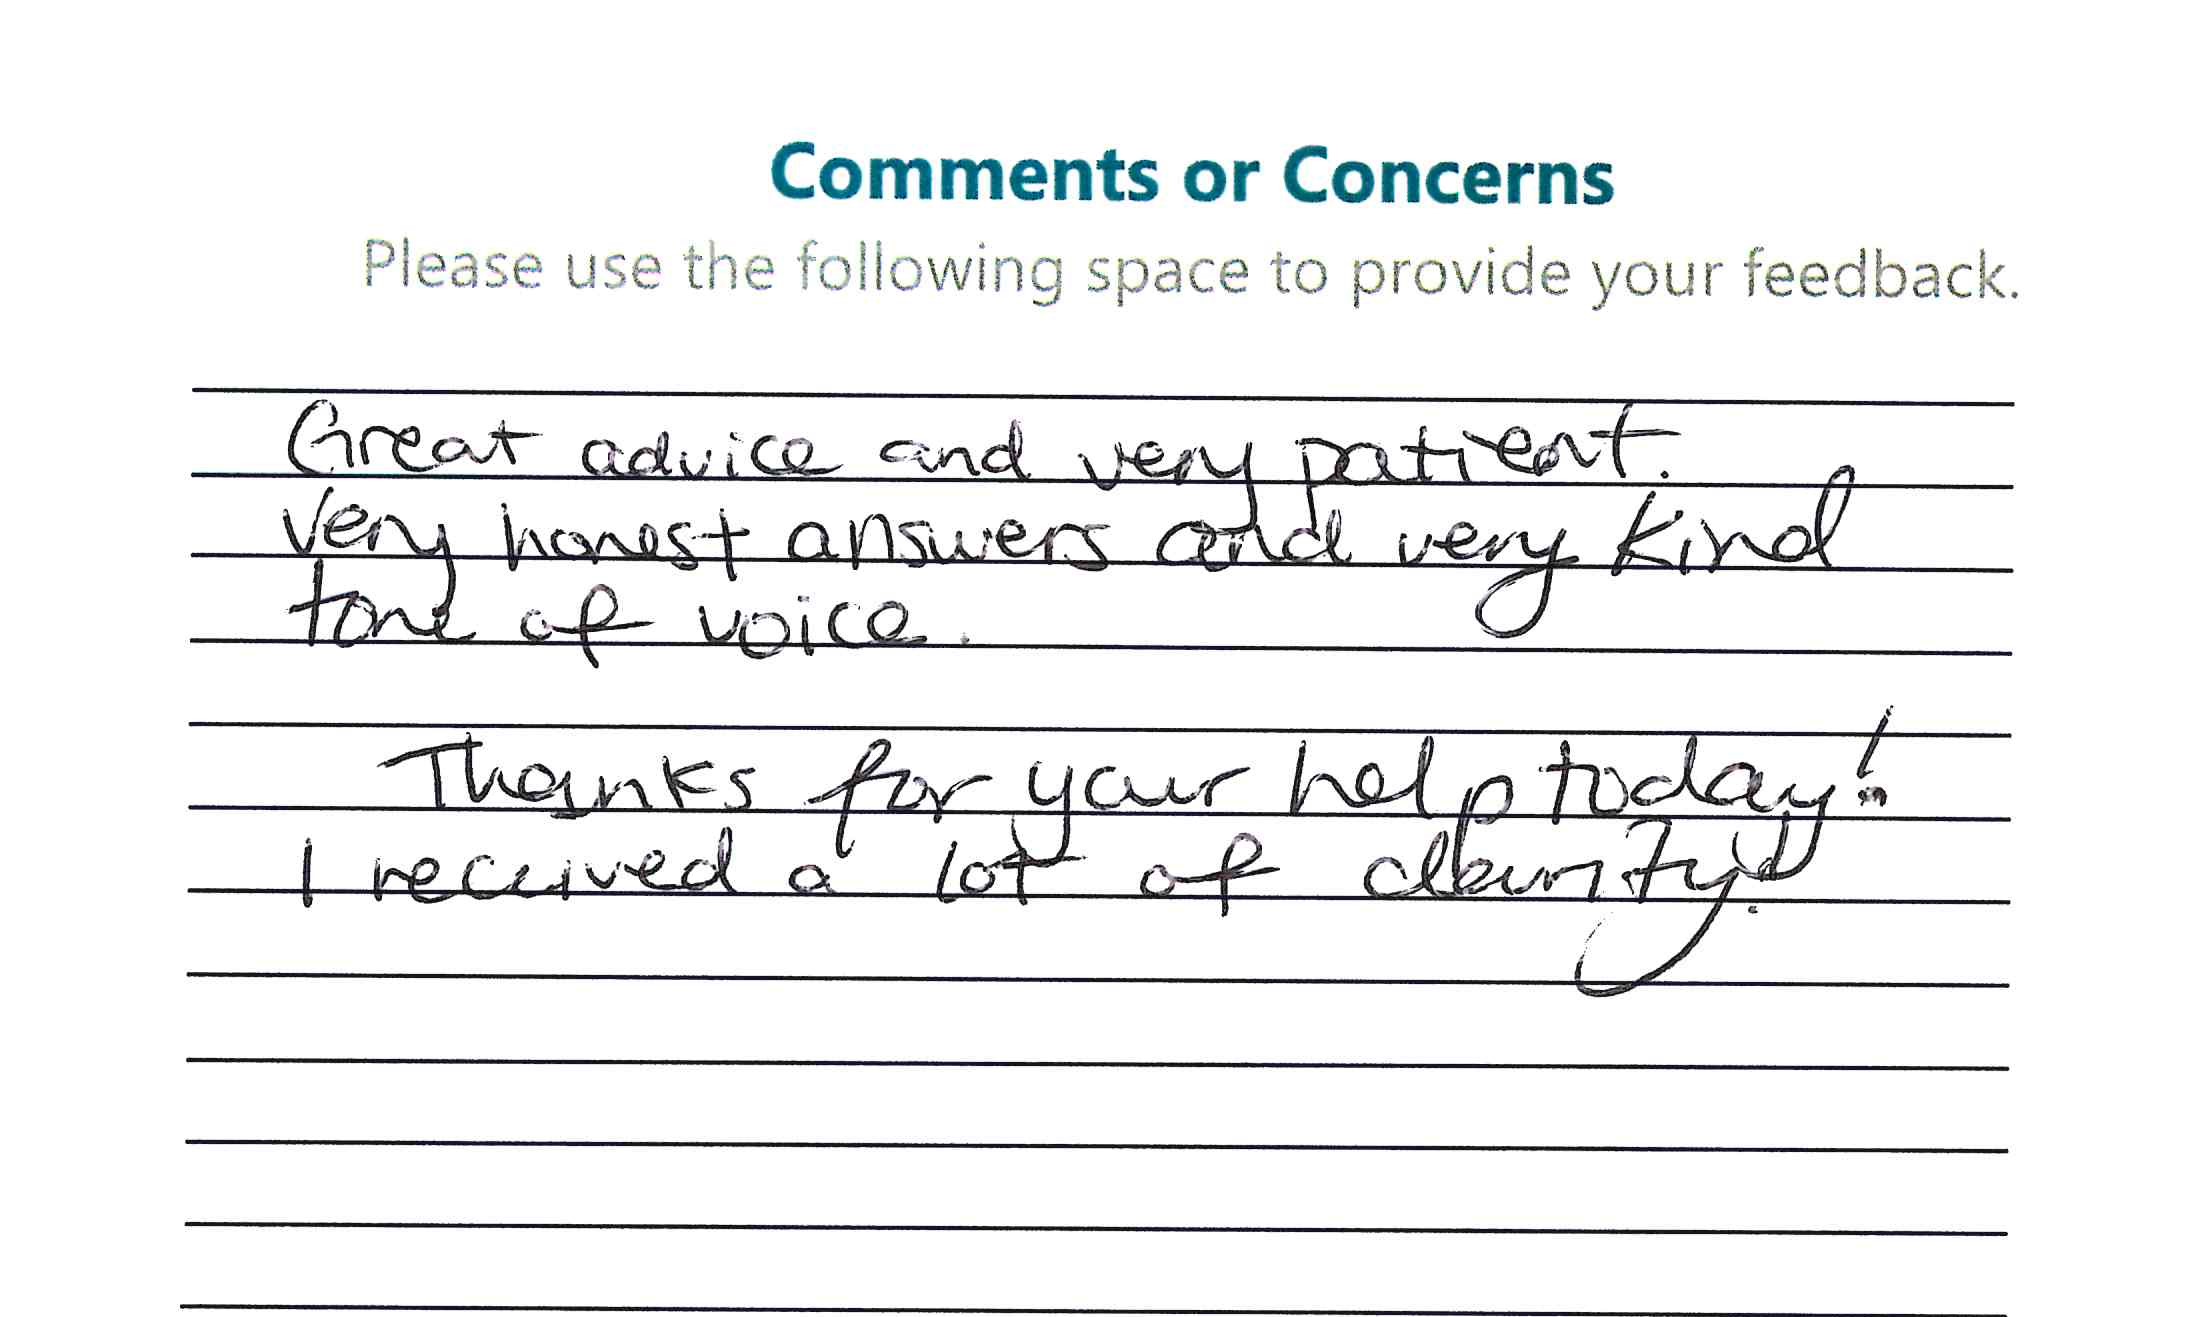 Comments or Concerns
Please use the following space to provide your feedback.
Great advice and very patient.
Very honest answers and very kind
tone of voice.
Thanks for your help today!
I received a lot of clarity!